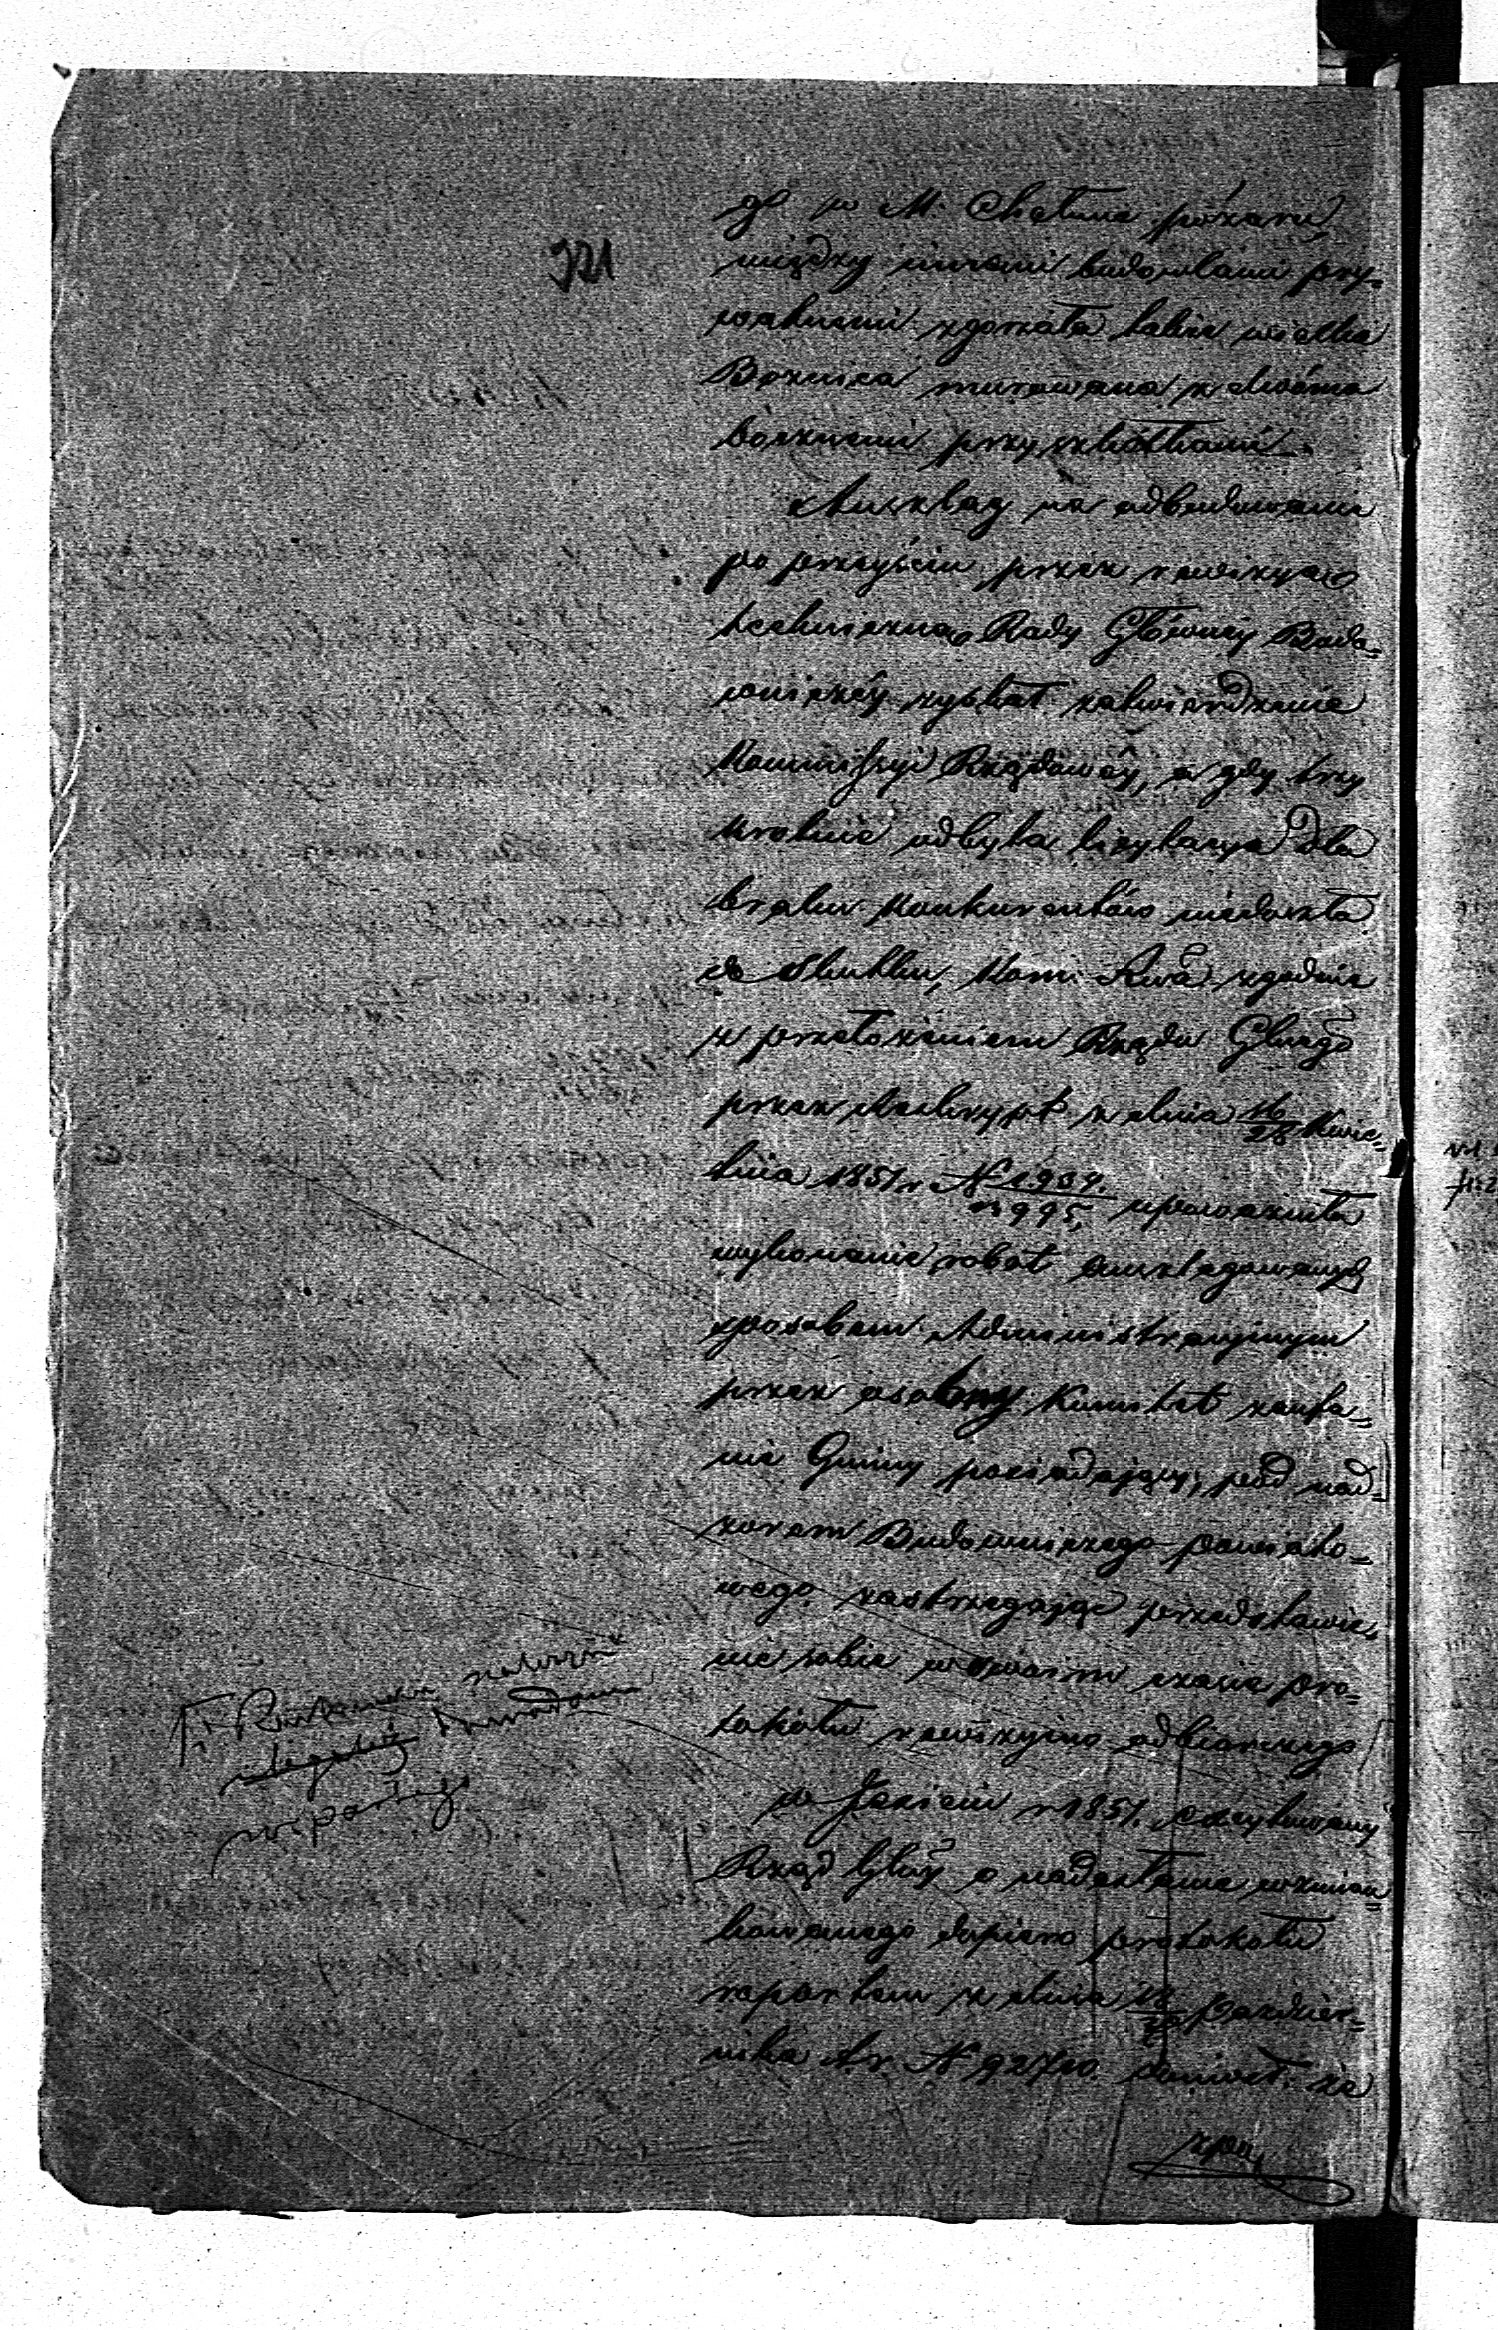 321
go w M. Chełmie pożaru,
między innemi budowlami pry-
watnemi zgorzała także wielka
Bożnica murowana z dwóma
bocznemi przyszkółkami.
Anszlag na odbudowanie
po przejściu przez rewizyą
techniczną Rady Głównéy Budo-
wniczéy zyskał zatwierdzenie
Kommissyi Rządowéy, a gdy trzy
krotnie odbyta licytacya dla
braku Konkurentów niedoszła
do skutku, Kom: Rwa zgodnie
z przełożeniem Rządu Glnego
przez Reskrypt z dnia 16/28 Kwie-
tnia 1851 r N 1934/1995, upoważniła
wykonanie robot anszlagowanych
sposobem Administracyinym
przez osobny Komitet zaufa-
nie Gminy posiadający, pod nad-
zorem Budowniczego Powiato-
wego, zastrzegając przedstawie-
nie sobie w swoim czasie pro-
tokołu rewizyjno odbiorczego
w Jesieni r 1851. excytowany
Rząd Glny o nadesłanie wzmian-
kowanego dopiero protokołu
raportem z dnia 18/30 Paździer-
nika t.r. N 92720. doniósł, że
wspartego